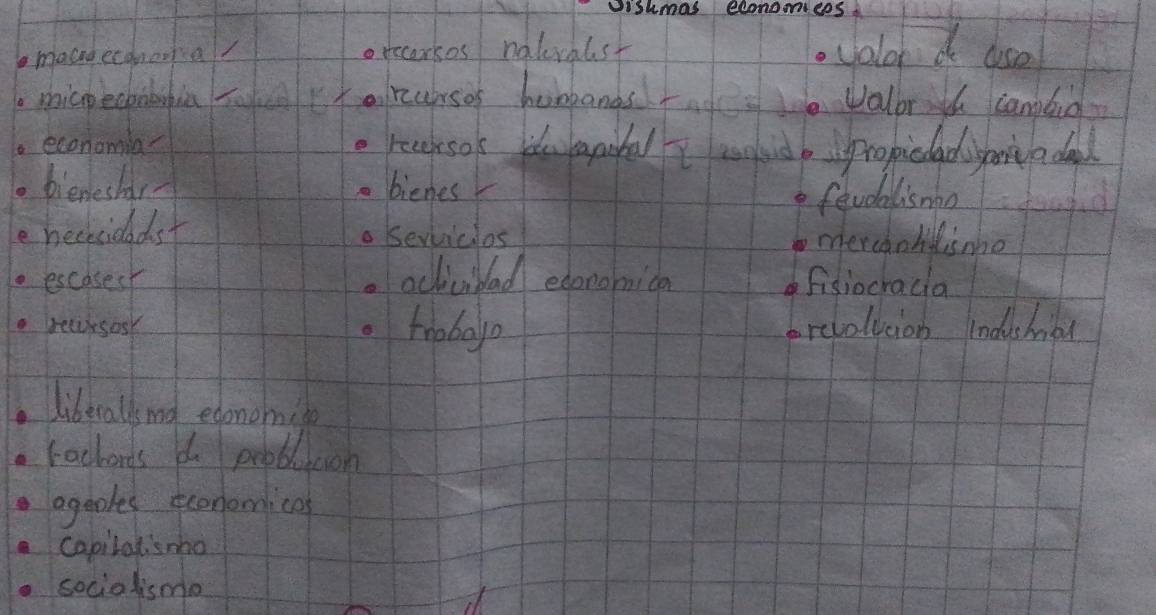 Sistemas economicos
macroeconomia
microeconomia
economia
bienestar
necesidades
escases
recursos
recursos naturales
recursos humanos
recursos de capital
bienes
servicios
actividad economica
trabajo
valor de uso
valor de cambio
propiedad privada
feudalismo
mercantilismo
fisiocracia
revolucion industrial
liberalismo economico
factores de produccion
agentes economicos
capitalismo
socialismo